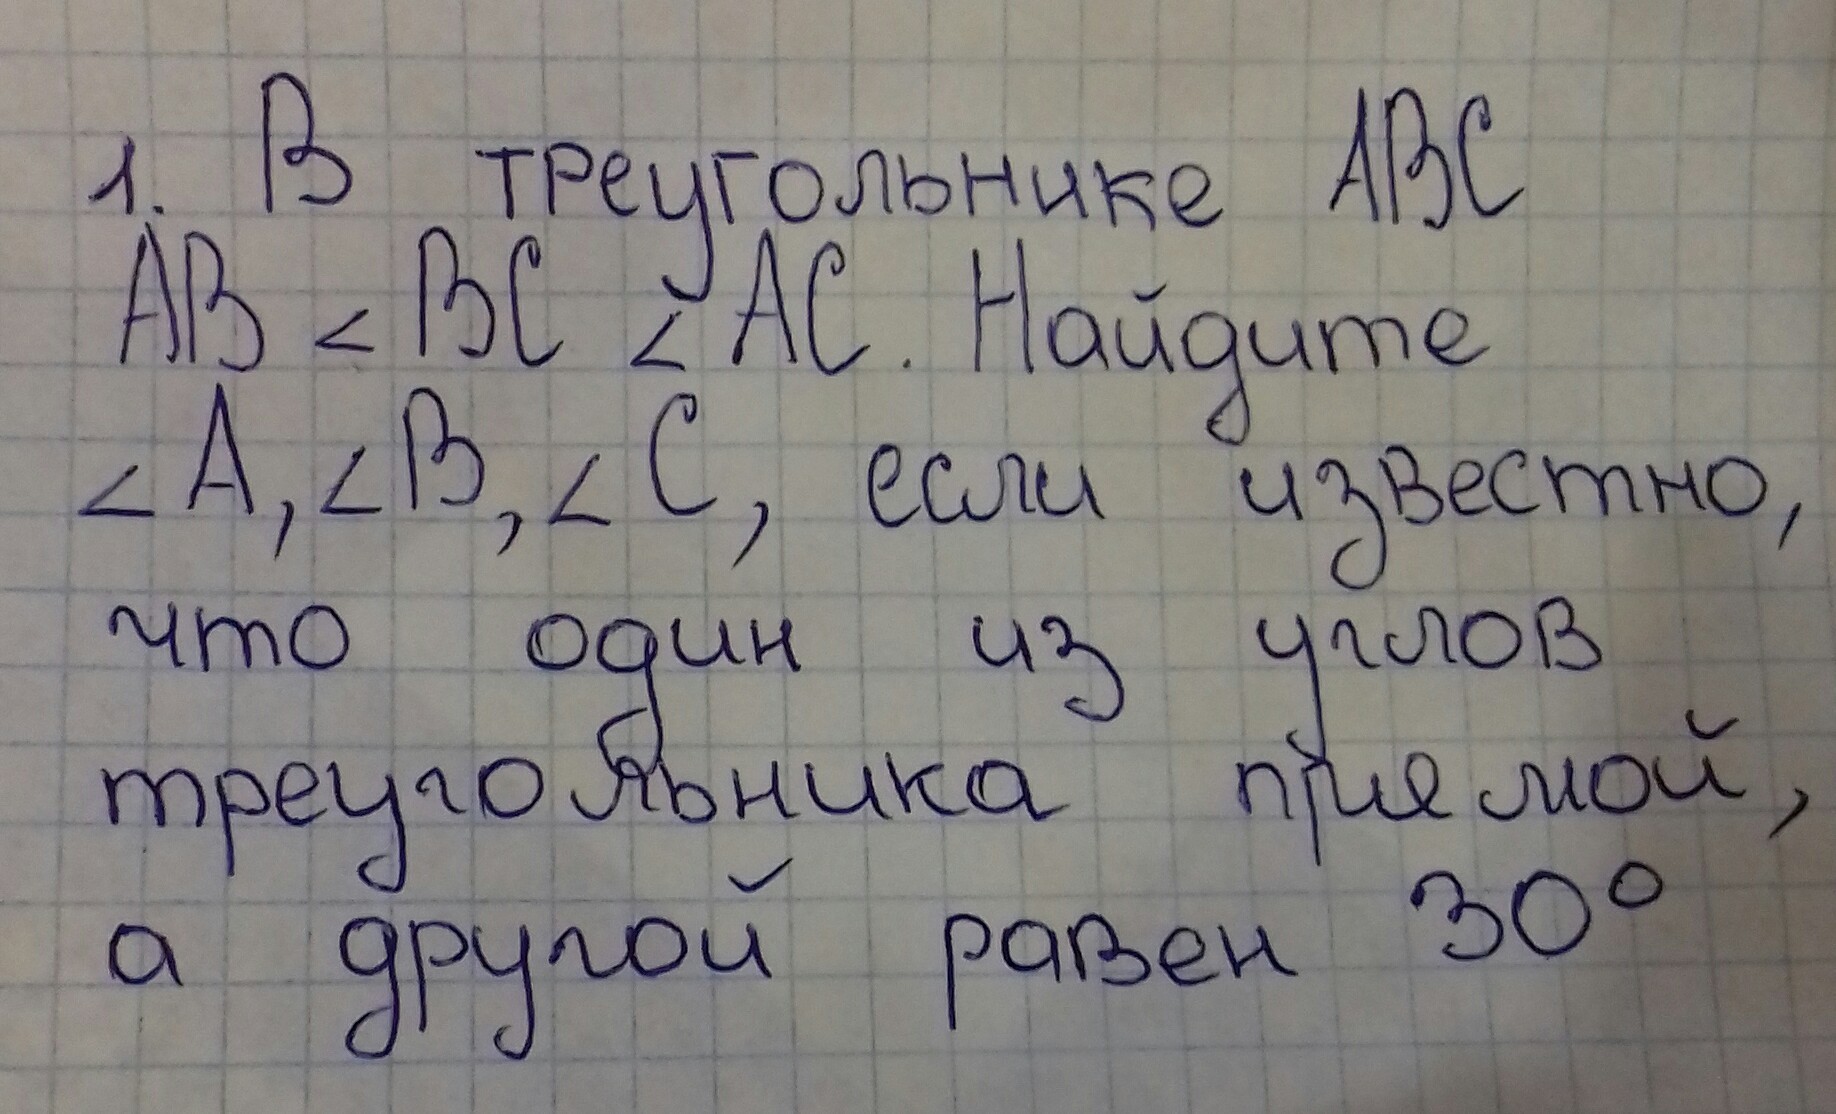 1. В треугольнике ABC
AB < BC < AC. Найдите
<A, <B, <C, если известно,
что один из углов
треугольника прямой,
а другой равен 30°